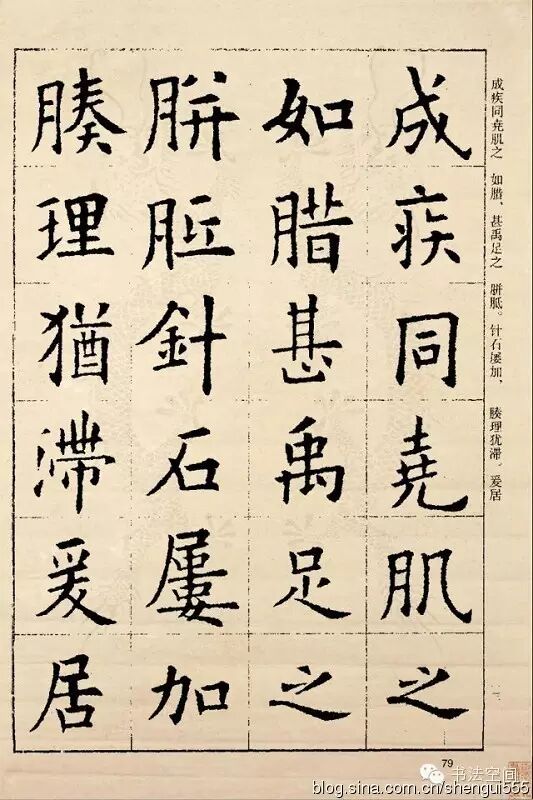 成疾同堯肌之
如腊甚禹足之
胼胝針石屢加
腠理猶滯爰居
成疾同尧肌之 如腊、甚禹足之 胼胝。针石屡加、 腠理犹滞。爰居
79
书法空间
blog.sina.com.cn/shengui555